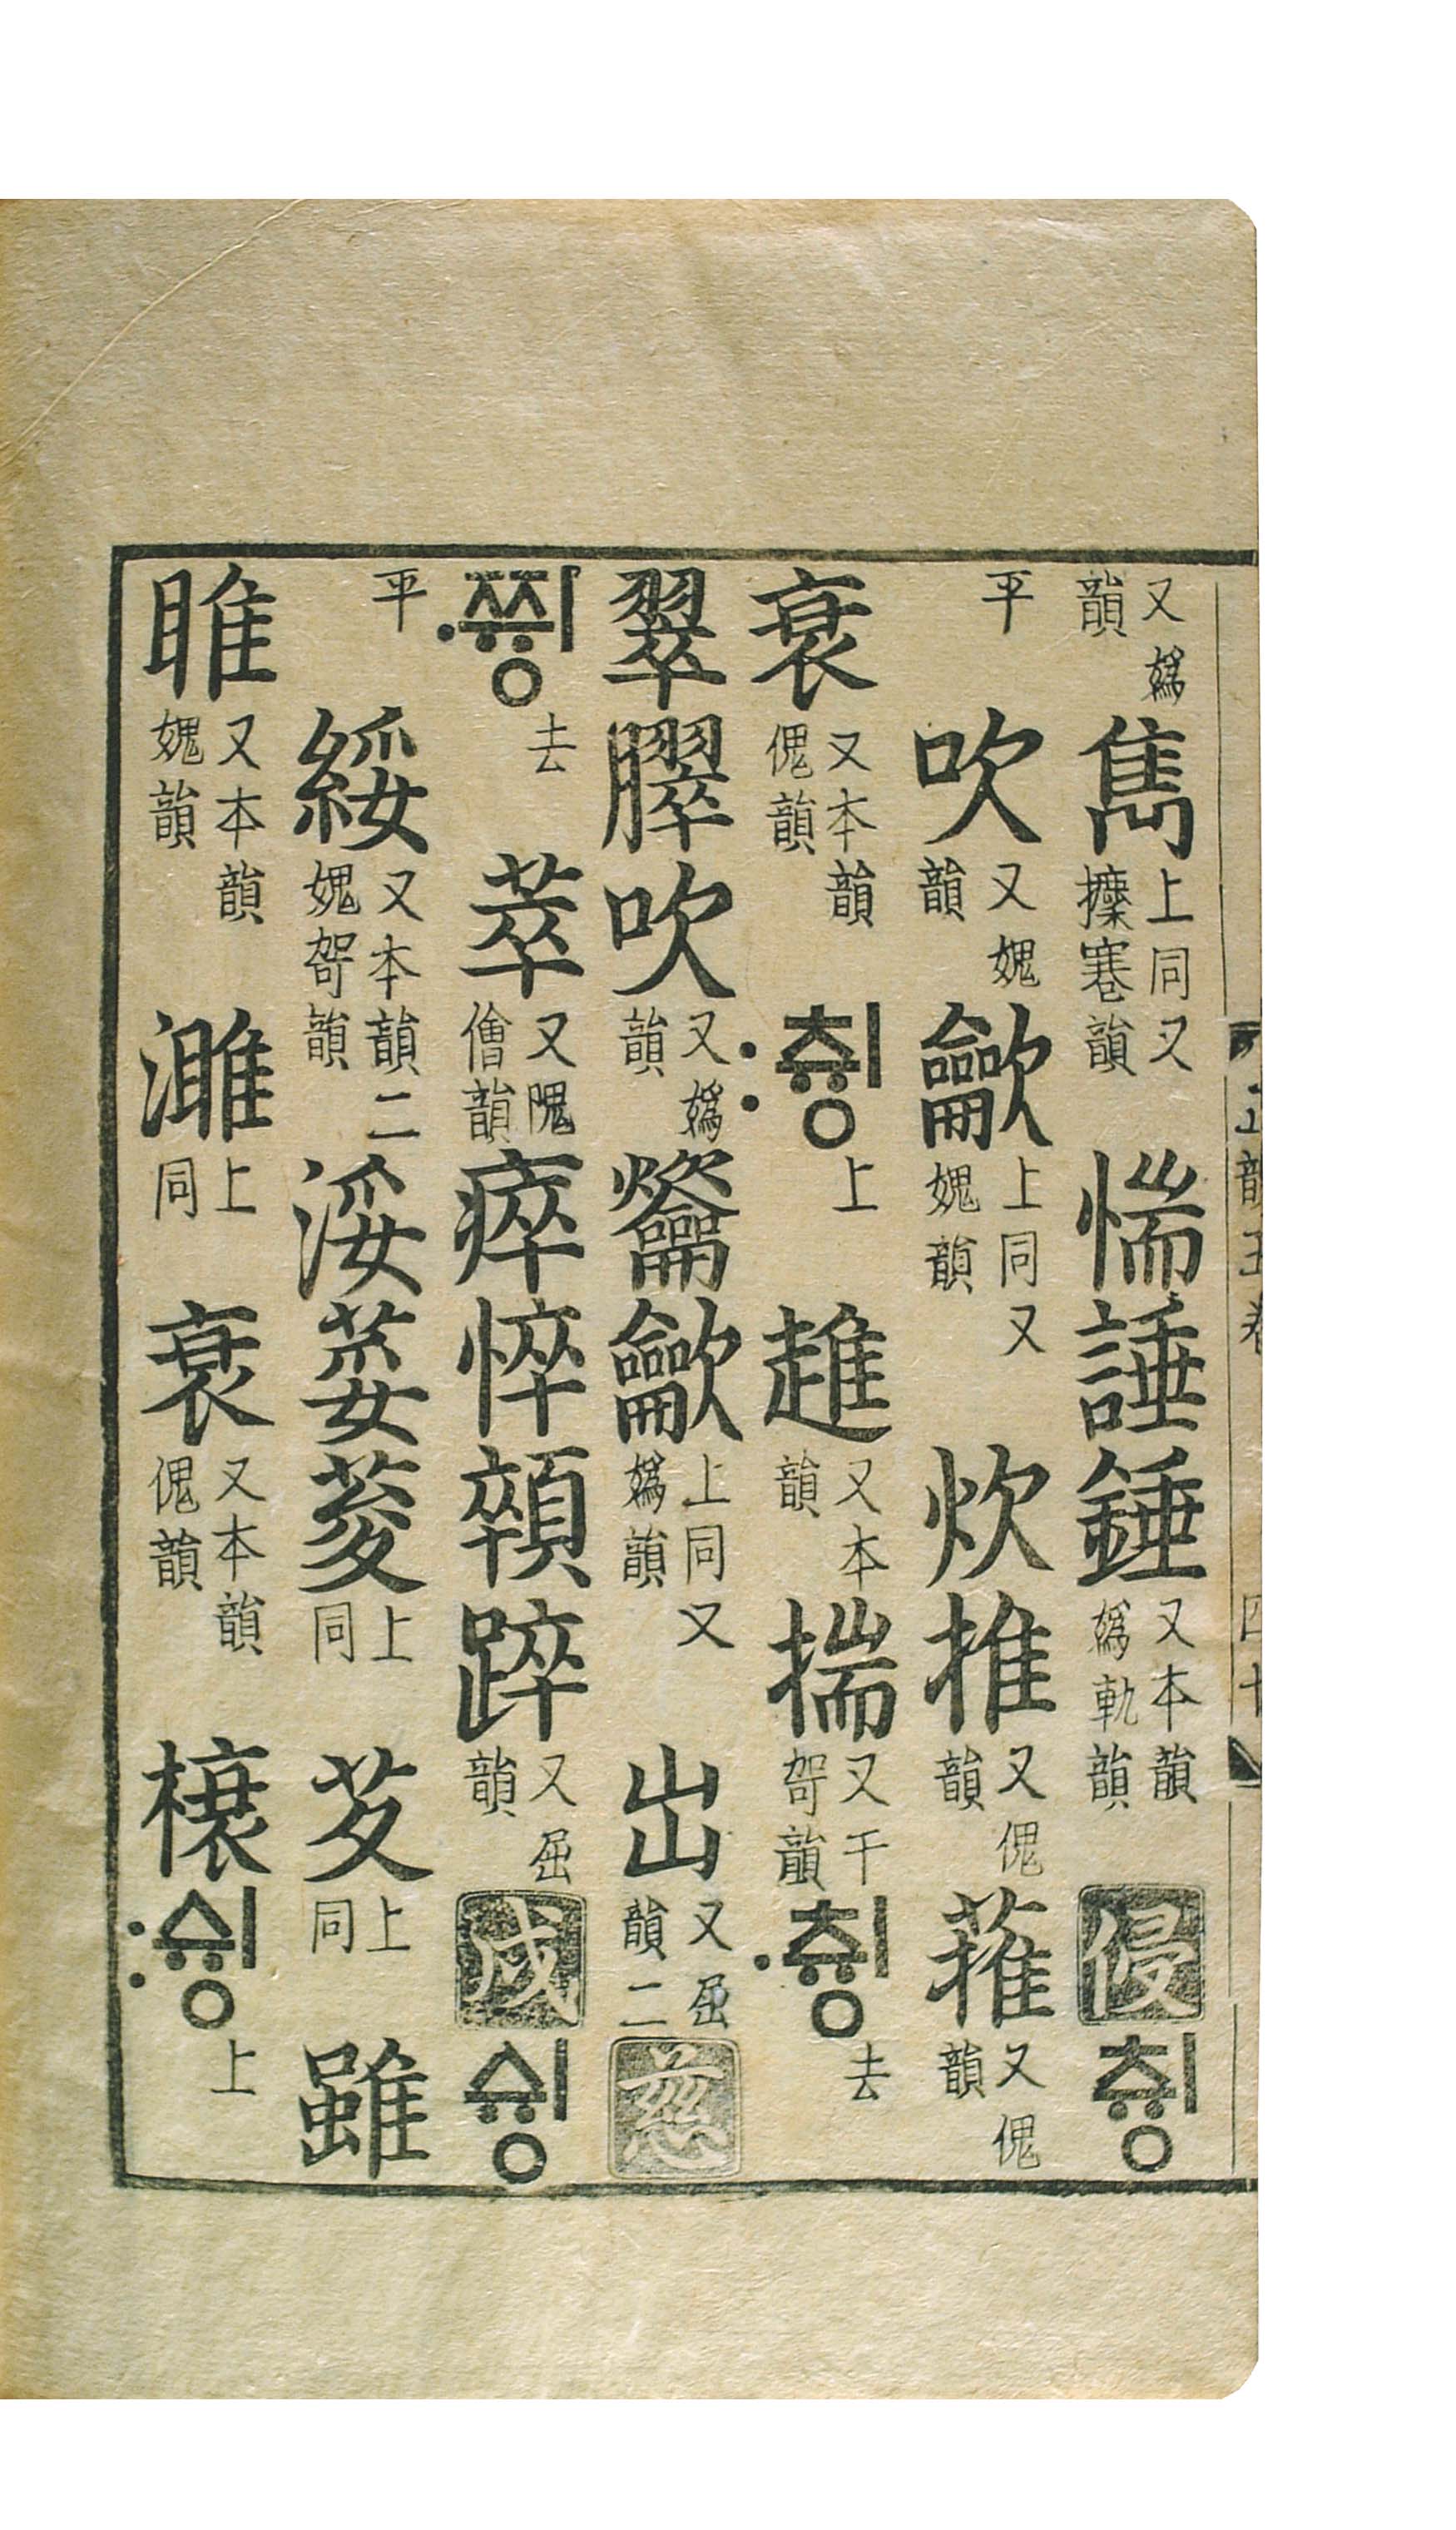 又嬀韻 雋 上同又蹇韻 惴 諈 錘 又本韻嬀軌韻 侵 ᄎᆔᆼ
平 吹 又媿韻 龡 上同又媿韻 炊 推 又傀韻 蓷 又傀韻
衰 又本韻傀韻 〯ᄎᆔᆼ 上 趡 又本韻 揣 又干哿韻 〮ᄎᆔᆼ 去
翠 臎 吹 又嬀韻 龡 上同又嬀韻 出 又屈韻二 慈
〮ᄍᆔᆼ 去 萃 又隗儈韻 瘁 悴 顇 踤 又屈韻 戌 ᄉᆔᆼ
平 綏 又本韻二媿哿韻 浽 荽 上同 上同 雖
睢 又本韻媿韻 濉 上同 衰 又本韻傀韻 榱 〯ᄉᆔᆼ 上
正韻五卷 四十